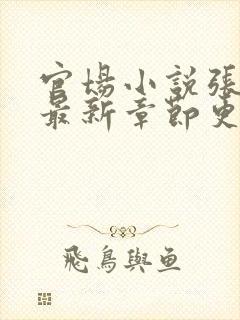 官場小說張
最新章節更
飛鳥與魚